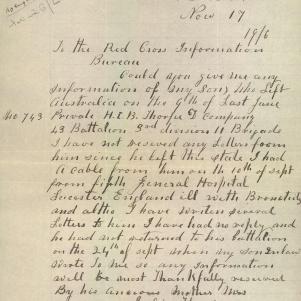 Nov 17
1916
To the Red Cross Information
Bureau
Could you give me any
information of my Son Who Left
Australia on the 9th of Last June
No 743 Private H. E. B. Thorpe D company
43 Battalion 3rd division 11 Brigade
I have not receved any Letters from
him since he left this state I had
A cable from him on the 10th of sept
from Fifth General Hospital
Leicester England ill with Bronchitis
and altho I have writen several
Letters to him I have had no reply and
he had not returned to his battalion
on the 24th of sept when my son in law
wrote to me so any Information
will be most Thankfully receved
By his Anxious Mother Mrs